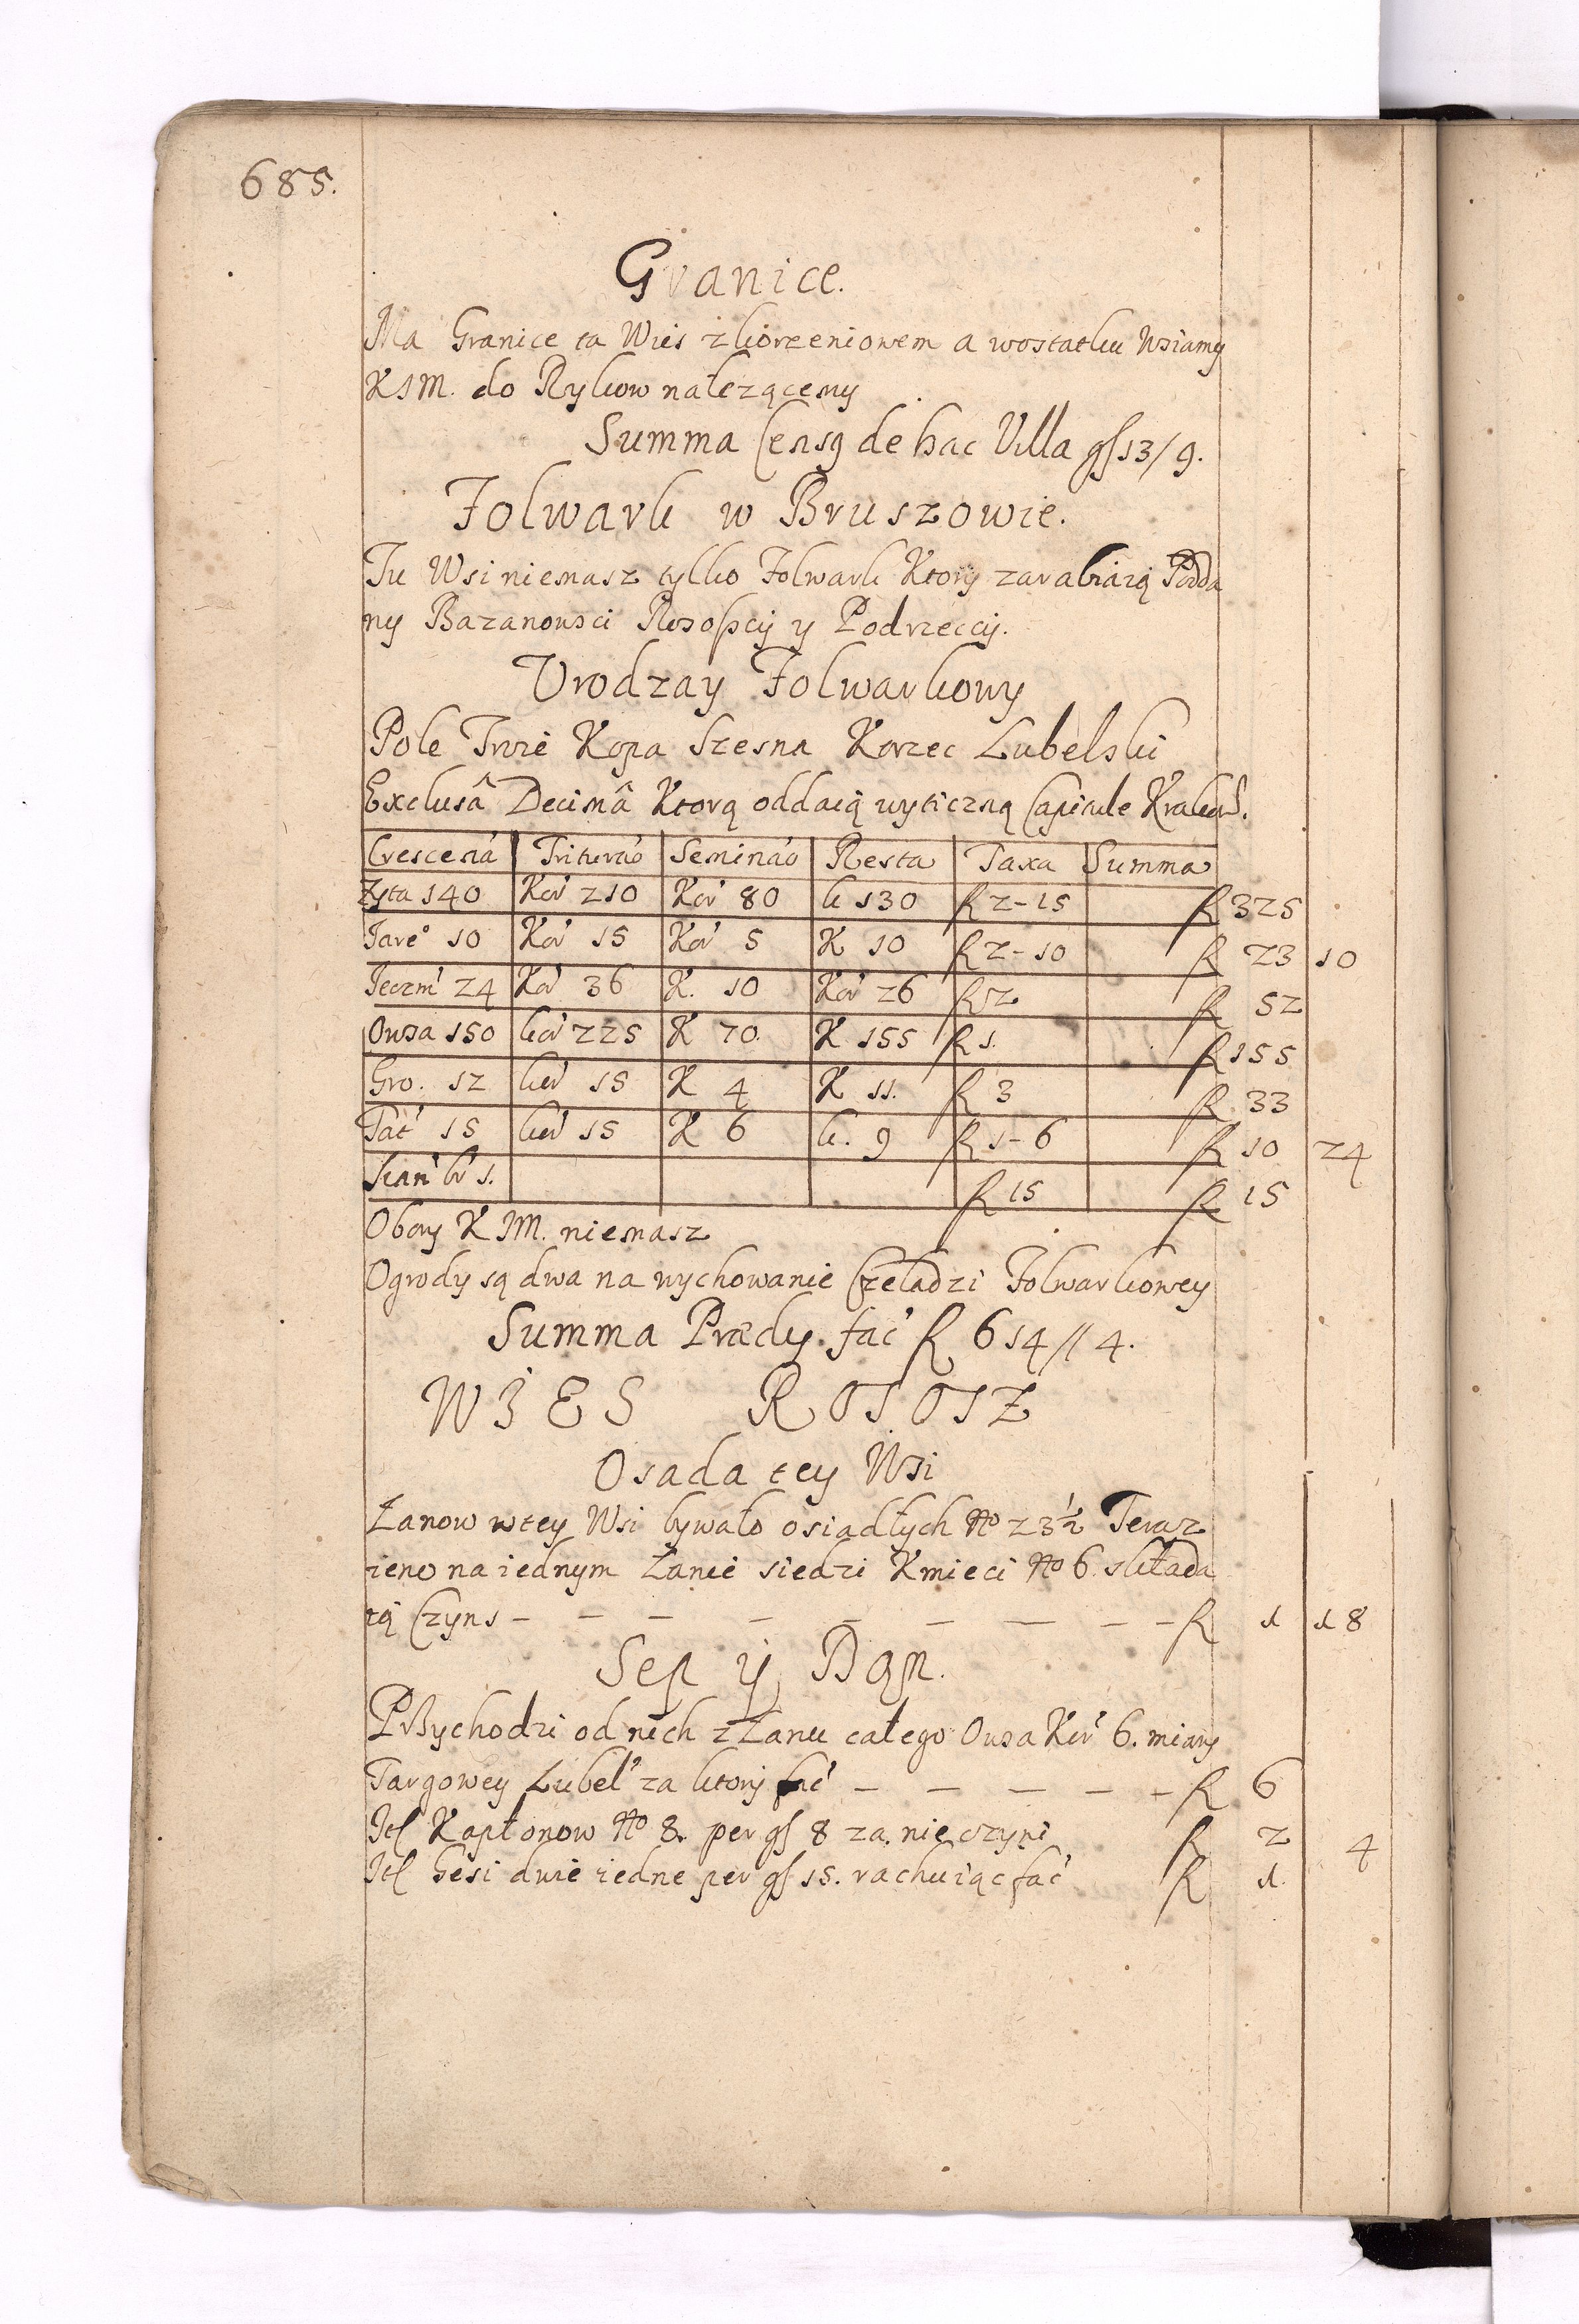 685.
Granice.
Ma Granice ta Wies z Korzeniowem a wostatku Wsiamy
KJM. do Rykow nalezącemy
Summa Censq de hac Villa gſ 13/9.
Folwark w Bruszowie.
Tu Wsi niemasz tylko Folwark Ktory zarabiaią Podda
ny Bazanowsci Rososcy y Podrzeccy.
Urodzay Folwarkowy
Pole Trzoie Kopa Szesna Korzec Lubelski
Exclusâ Decimâ Ktorą oddaią wyticzną Capitule Krakow.
Crescená Triturao Seminao Resta Taxa Summa
Zyta 140 Kor 210 Kor 80 k 130 R 2-15 R 325
Jare° 10 Kor 15 Kor 5 K 10 R 2-10 R 23 10
Jeczm 24 Kor 36 K. 10 Kor 26 R 2 R 52
Owsa 150 kor 225 K 70. K 155 R 1. R 155
Gro. 12 kor 15 K 4 K 11. R 3 R 33
Tat 15 kor 15 K 6 k. 9 R 1-6 R 10 24
Sian br 1. R 15 R 15
Obory KJM. niemasz
Ogrody są dwa na wychowanie Czeladzi Folwarkowey
Summa Prædy. fac R 614//4.
WIES ROSOSZ
Osada tey Wsi
Łanow wtey Wsi bywało osiadłych No 23 1/2 Teraz
ieno na iednym Łanie siedzi Kmieci No 6. składa
ią Czyns – – – – – – – – – R 1 18
Sep y Dan.
Przychodzi od nich z Łanu całego Owsa Kor 6. miary
Targowey Lubel za ktory fac – – – – – R 6
Itſ Kapłonow No 8. per gſ 8 za nie czyni R 2 4
Itſ Gesi dwie iedne per gſ 15. rachuiąc fac R 1.